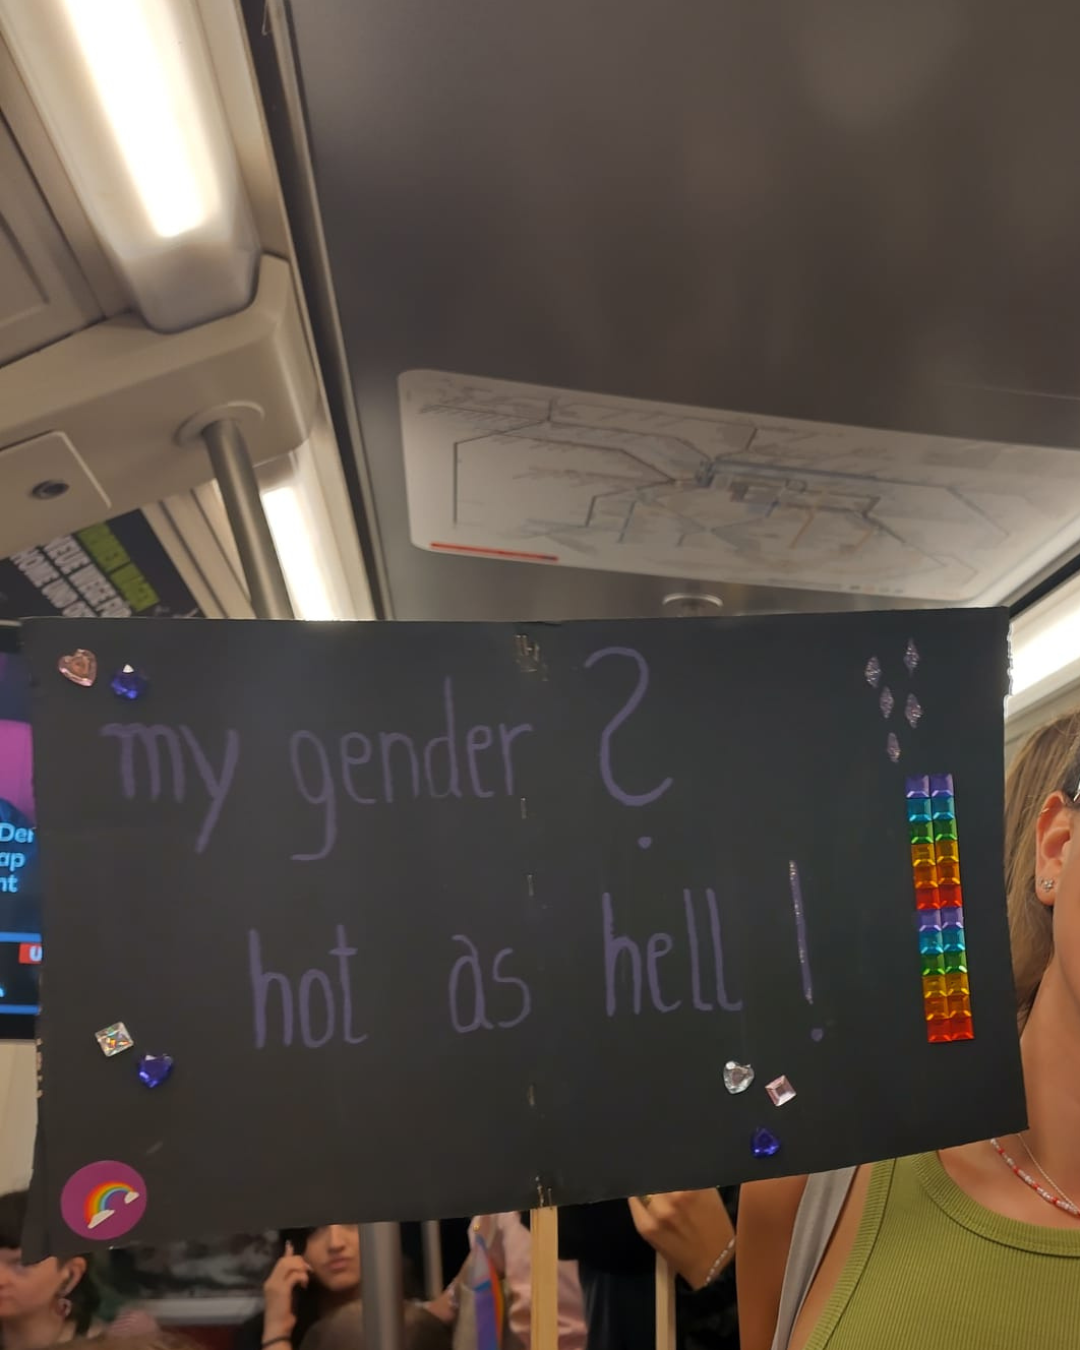 my gender ?
hot as hell !
NEUE WEGE
Der
ap
nt
U